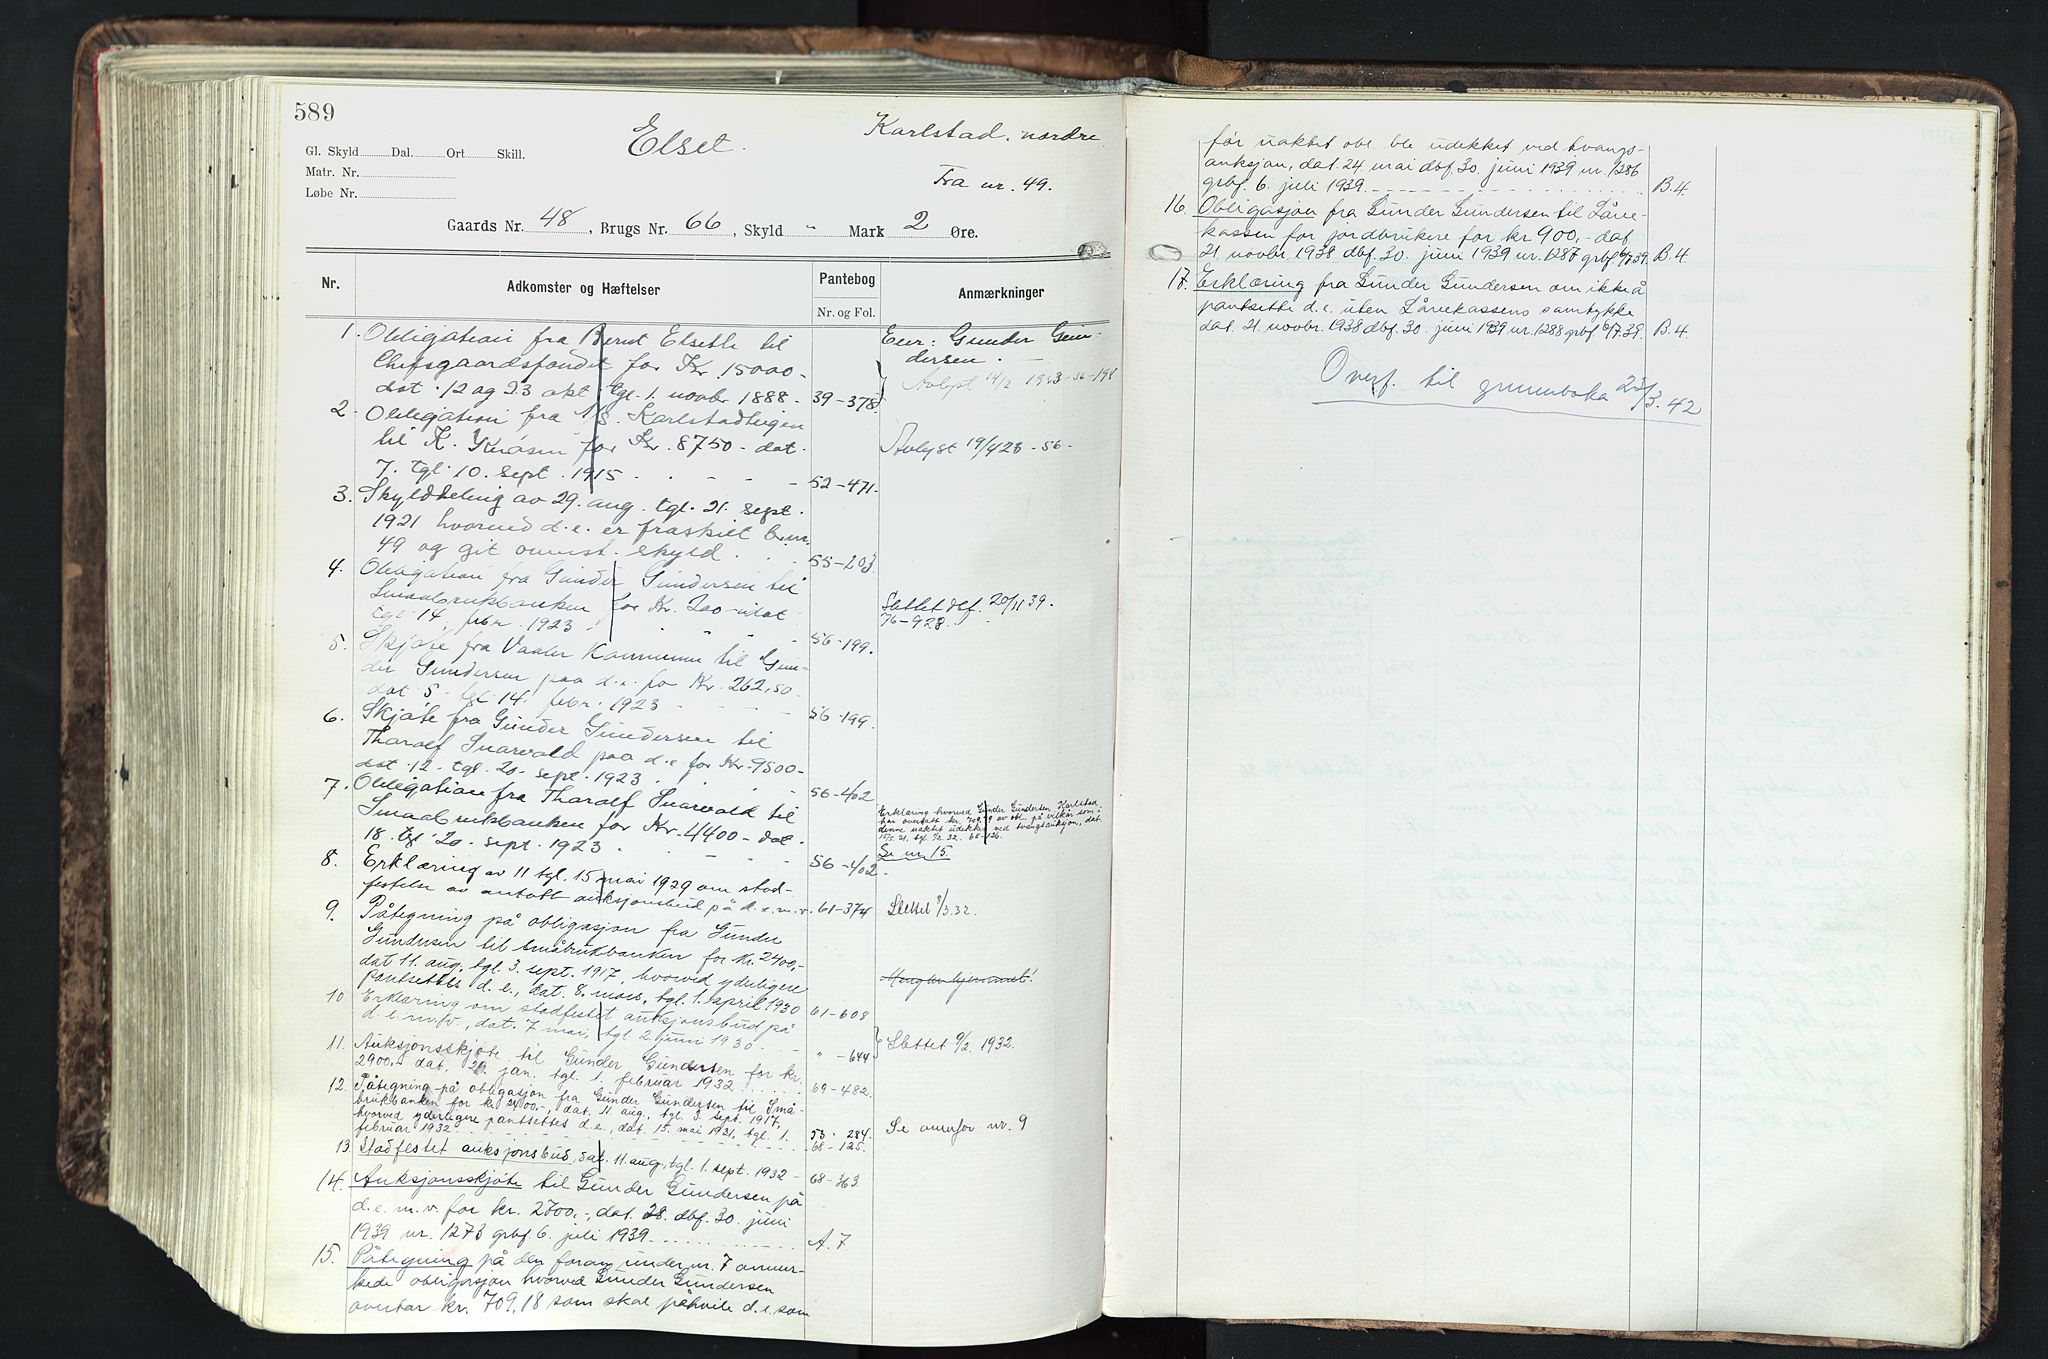 589
Elset.
Karlstad. nordre
Gl. Skyld Dal. Ort Skill.
Matr. Nr.
Løbe Nr.
Fra nr. 49.
Gaards Nr. 48, Brugs Nr. 66, Skyld " Mark 2 Øre.
Nr.
Adkomster og Hæftelser
Pantebog
Nr. og Fol.
Anmærkninger
1. Obligation fra Bernt Elseth til
for Kr 15000-
dat. 12 og 23 okt tgl. 1. novbr 1888- 39-378.
Eier: Gunder Gun-
dersen.
Avlyst 14/2 1923-56-198
2. Obligation fra Karlstadhugen
til K. for Kr. 8750- dat.
7. tgl. 10. sept. 1915 52-471.
Avlyst 19/4 23 -56-
3. Skylddeling av 29. aug. tgl. 21. sept.
1921 hvorved d.e. er fraskilt b.nr.
49 og git omenst. skyld. 55-203
4. Obligation fra Gunder Gundersen til
Smaabrukbanken for Kr. 200- dat
tgl 14. febr. 1923 56-199.
Slettet dbf. 20/11 39.
76-928.
5. Skjøte fra Vaaler Kommune til Gun-
der Gundersen paa d.e. for Kr. 262,50-
dat 5- tgl 14. febr. 1923 56-199.
6. Skjøte fra Gunder Gundersen til
Tharolf Snarvold paa d.e for Kr. 9500-
dat. 12. tgl. 20. sept. 1923. 56-402
7. Obligation fra Tharolf Snarvold til
Smaabrukbanken for Kr. 4400- dat.
18. tgl 20. sept. 1923 56-402.
Erklæring hvorved Gunder Gundersen Karlstad
har overtatt kr. 709,18 av obl. på vilkår som i
denne uaktet udekket ved tvangsauksjon, dat.
15/5 31. tgl. 1/2. 32. 68-126.
Se nr. 15.
8. Erklæring av 11 tgl. 15 mai 1929 om stad-
festelse av antatt auksjonsbud på d.e.m.v. 61-374
Slettet 8/3.32.
9. Påtegning på obligasjon fra Gunder
Gundersen til Småbrukbanken for kr. 2400,-
dat 11. aug. tgl. 3. sept. 1917, hvorved yderligere
pantsettes d.e., dat. 8. mars, tgl. 1. april 1930 61-608
10. Erklæring om stadfestet auksjonsbud på
d.e.m.v., dat. 7 mai, tgl 2. juni 1930. " -644
Slettet 9/2. 1932.
11. Auksjonsskjøte til Gunder Gundersen for kr.
2900,- dat. 29. jan. tgl. 1. februar 1932 69-482.
12. Påtegning på obligasjon fra Gunder Gundersen til Små-
brukbanken for kr. 2400,-, dat. 11 aug., tgl. 3. sept. 1917,
hvorved yderligere pantsettes d.e., dat. 15. mai 1931, tgl. 1.
februar 1932 53-284.
68-125.
Se ovenfor nr. 9
13. Stadfestet auksjonsbud, dat. 11 aug. tgl. 1. sept. 1932- 68-363.
14. Auksjonsskjøte til Gunder Gundersen på
d.e. m.v. for kr. 2700,-, dat. 28. dbf. 30. juni
1939 nr. 1273 grbf 6. juli 1939. A. 7
15. Påtegning på den foran under nr. 7 anmer-
kede obligasjon hvorved Gunder Gundersen
overtar kr. 709,18 som skal påhvile d.e. som
før uaktet obl. ble udekket ved tvangs-
auksjon, dat. 24. mai dbf. 30. juni 1939 nr. 1286
grbf. 6. juli 1939. B.4.
16. Obligasjon fra Gunder Gundersen til Låne-
kassen for jordbrukere for kr 900,- dat.
21. novbr. 1938 dbf. 30. juni 1939 nr. 1287 grbf. 6/7 39. B.4.
17. Erklæring fra Gunder Gundersen om ikke å
pantsette d.e. uten Lånekassens samtykke
dat. 21. novbr. 1938 dbf. 30. juni 1939 nr. 1288 grbf 6/7. 39. B.4.
Overf. til grunnboka 23/3.42